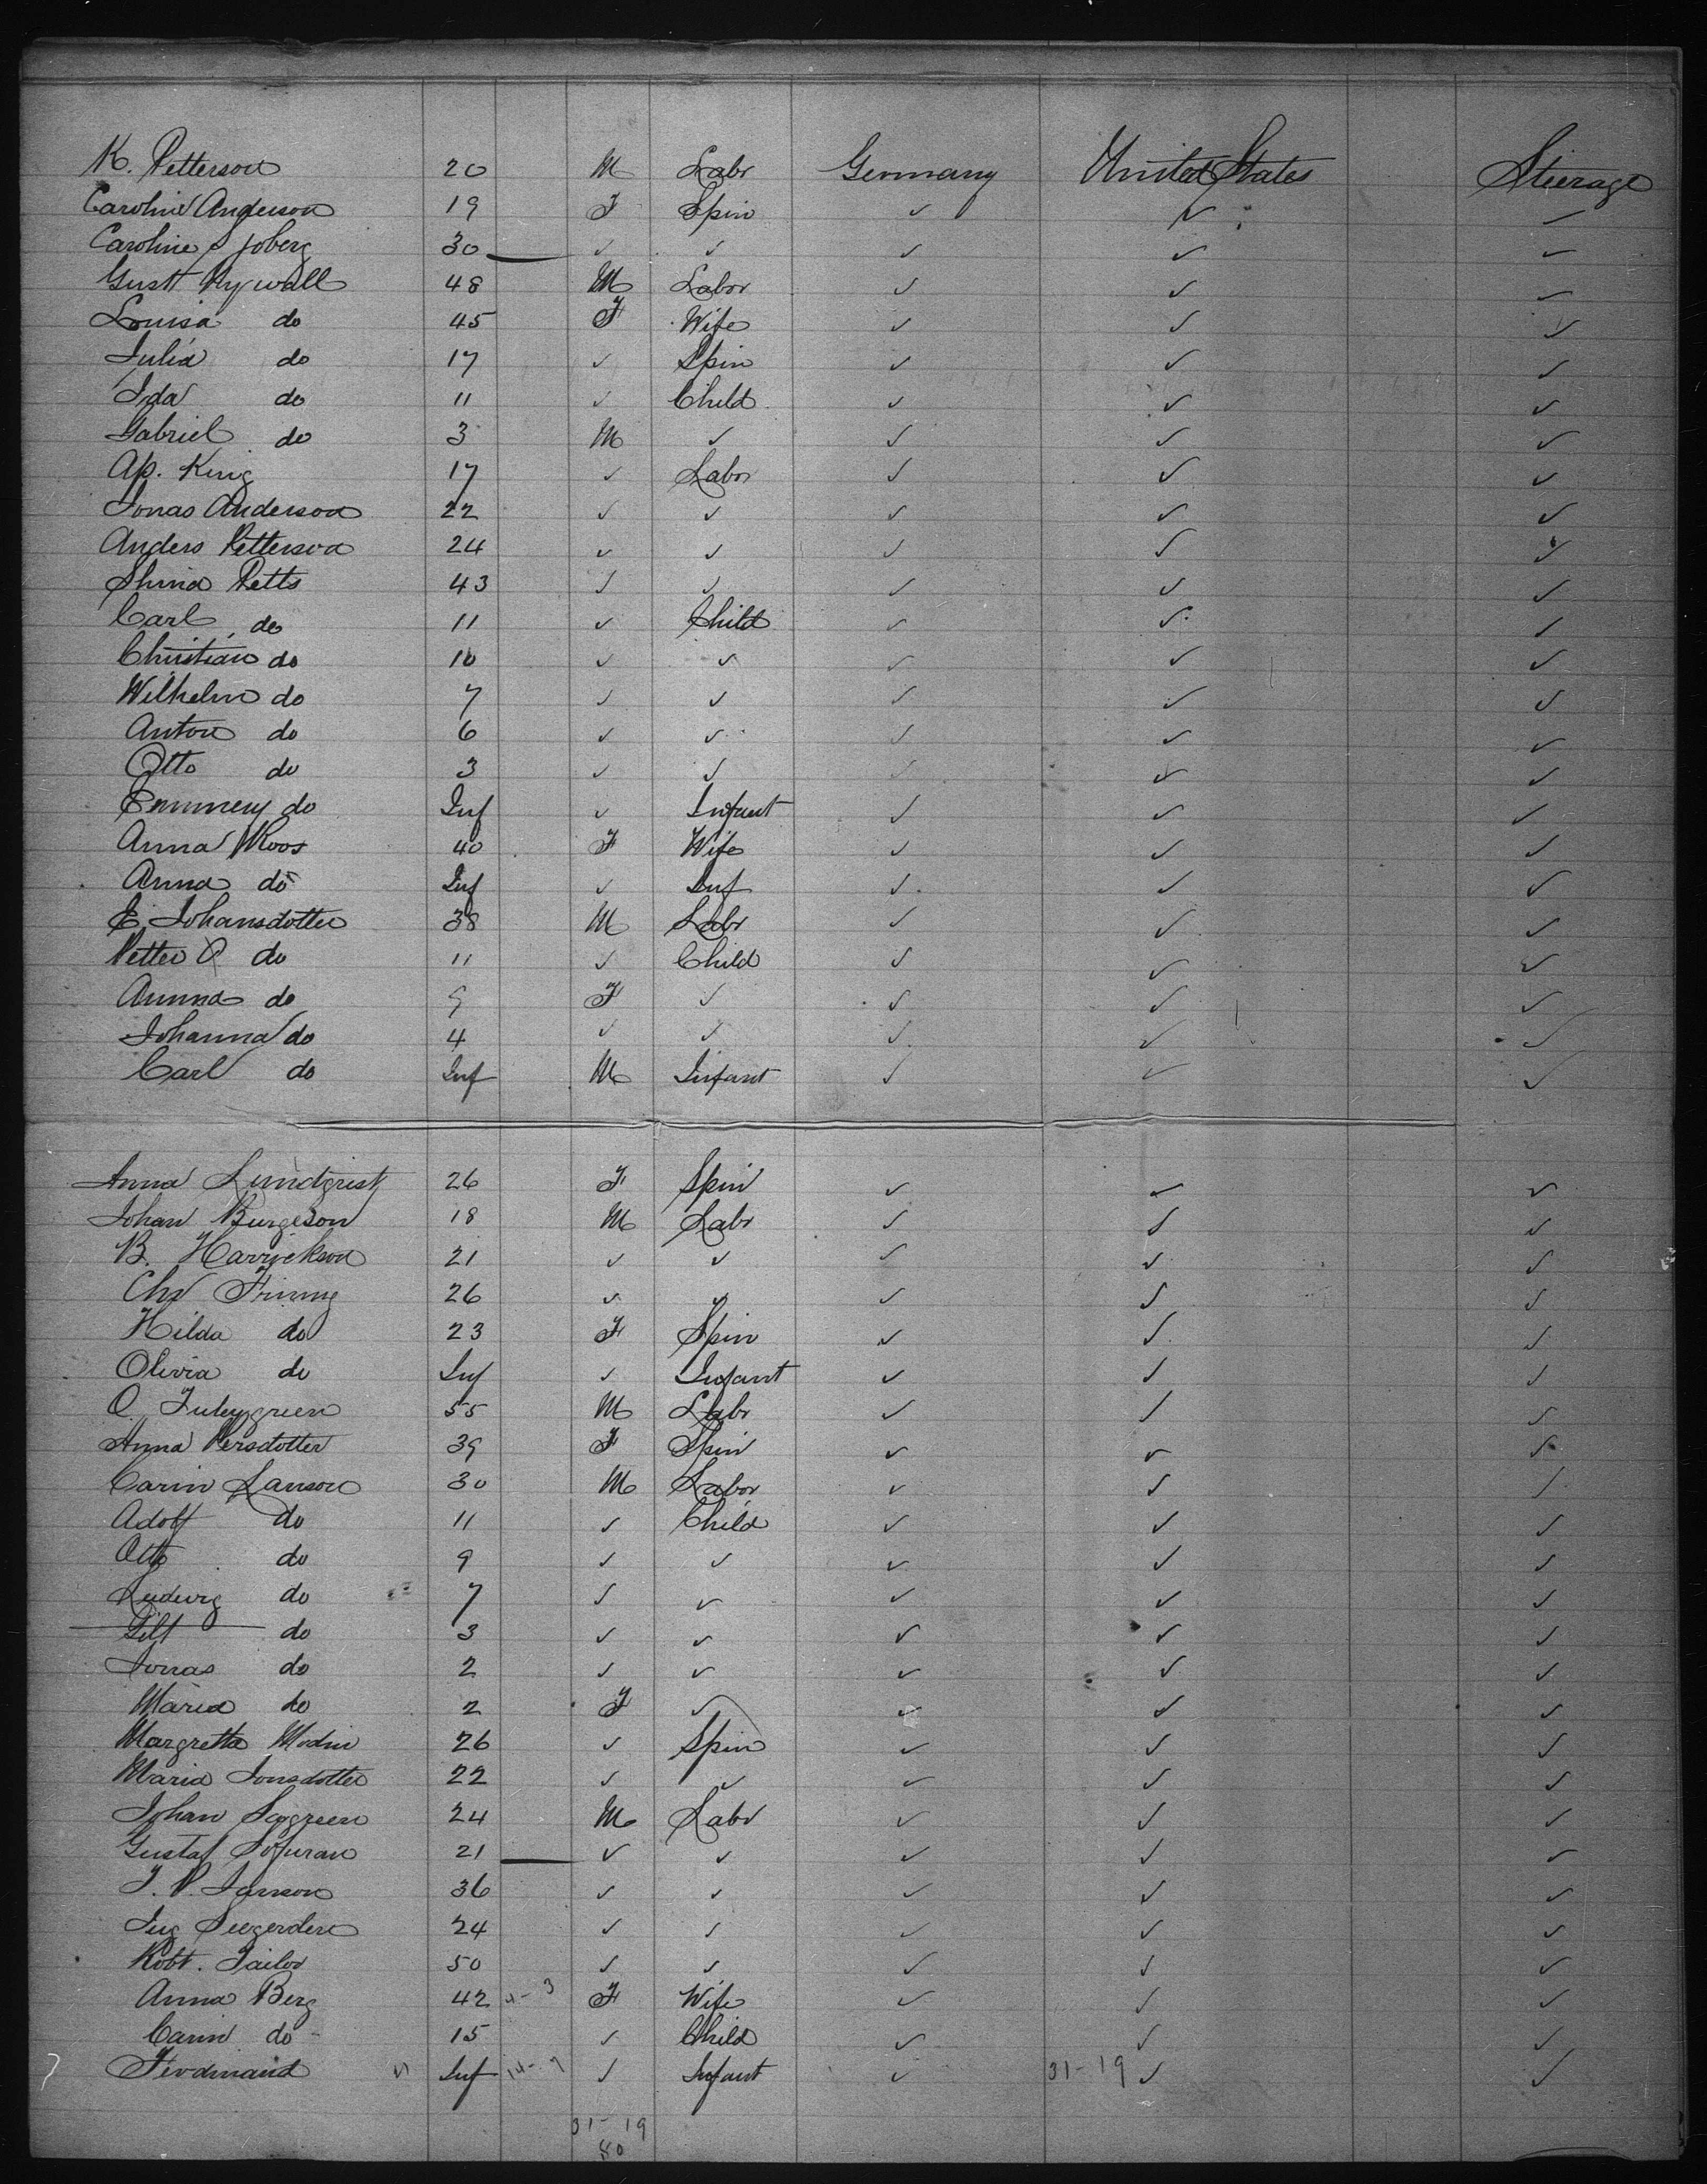 K. Petterson 20 M Labr Germany United States Steerage
Caroline Anderson 19 F Spin ✓ ✓ ✓
Caroline Sjoberg 30 ✓ ✓ ✓ ✓ ✓
Gust 48 M Labor ✓ ✓ ✓
Louisa do 45 F Wife ✓ ✓ ✓
Julia do 17 ✓ Spin ✓ ✓ ✓
Ida do 11 ✓ Child ✓ ✓ ✓
Gabriel do 3 M ✓ ✓ ✓ ✓
Ap. King 17 ✓ Labor ✓ ✓ ✓
Jonas Anderson 22 ✓ ✓ ✓ ✓ ✓
Anders Petterson 24 ✓ ✓ ✓ ✓ ✓
Petts 43 ✓ ✓ ✓ ✓ ✓
Carl do 11 ✓ Child ✓ ✓ ✓
Christian do 10 ✓ ✓ ✓ ✓ ✓
Wilhelm do 7 ✓ ✓ ✓ ✓ ✓
Anton do 6 ✓ ✓ ✓ ✓ ✓
Otto do 3 ✓ ✓ ✓ ✓ ✓
do Inf ✓ Infant ✓ ✓ ✓
Anna Moos 40 F Wife ✓ ✓ ✓
Anna do Inf ✓ Inf ✓ ✓ ✓
E. Johansdotter 38 M Labr ✓ ✓ ✓
Petter O do 11 ✓ Child ✓ ✓ ✓
Anna do 9 F ✓ ✓ ✓ ✓
Johanna do 4 ✓ ✓ ✓ ✓ ✓
Carl do Inf M Infant ✓ ✓ ✓
Anna Lundqrist 26 F Spin ✓ ✓ ✓
Johan Burgeson 18 M Labr ✓ ✓ ✓
B. 21 ✓ ✓ ✓ ✓ ✓
Chs 26 ✓ ✓ ✓ ✓ ✓
Hilda do 23 F Spin ✓ ✓ ✓
Olivia do Inf ✓ Infant ✓ ✓ ✓
O. 55 M Labr ✓ ✓ ✓
Anna Persdotter 39 F Spin ✓ ✓ ✓
Carin Lanson 30 M Labor ✓ ✓ ✓
Adolf do 11 ✓ Child ✓ ✓ ✓
Otto do 9 ✓ ✓ ✓ ✓ ✓
Ludwig do 7 ✓ ✓ ✓ ✓ ✓
do 3 ✓ ✓ ✓ ✓ ✓
Jonas do 2 ✓ ✓ ✓ ✓ ✓
Maria do 2 F ✓ ✓ ✓ ✓
Margretta Modin 26 ✓ Spin ✓ ✓ ✓
Maria Jonsdotter 22 ✓ ✓ ✓ ✓ ✓
Johan 24 M Labr ✓ ✓ ✓
Gustaf 21 ✓ ✓ ✓ ✓ ✓
J. P. Janson 36 ✓ ✓ ✓ ✓ ✓
24 ✓ ✓ ✓ ✓ ✓
Robt. Tailor 50 ✓ ✓ ✓ ✓ ✓
Anna Berg 42 4-3 F Wife ✓ ✓ ✓
Carin do 15 ✓ Child ✓ ✓ ✓
Ferdinand Inf 14-7 ✓ Infant ✓ 31-19 ✓ ✓
31-19
80